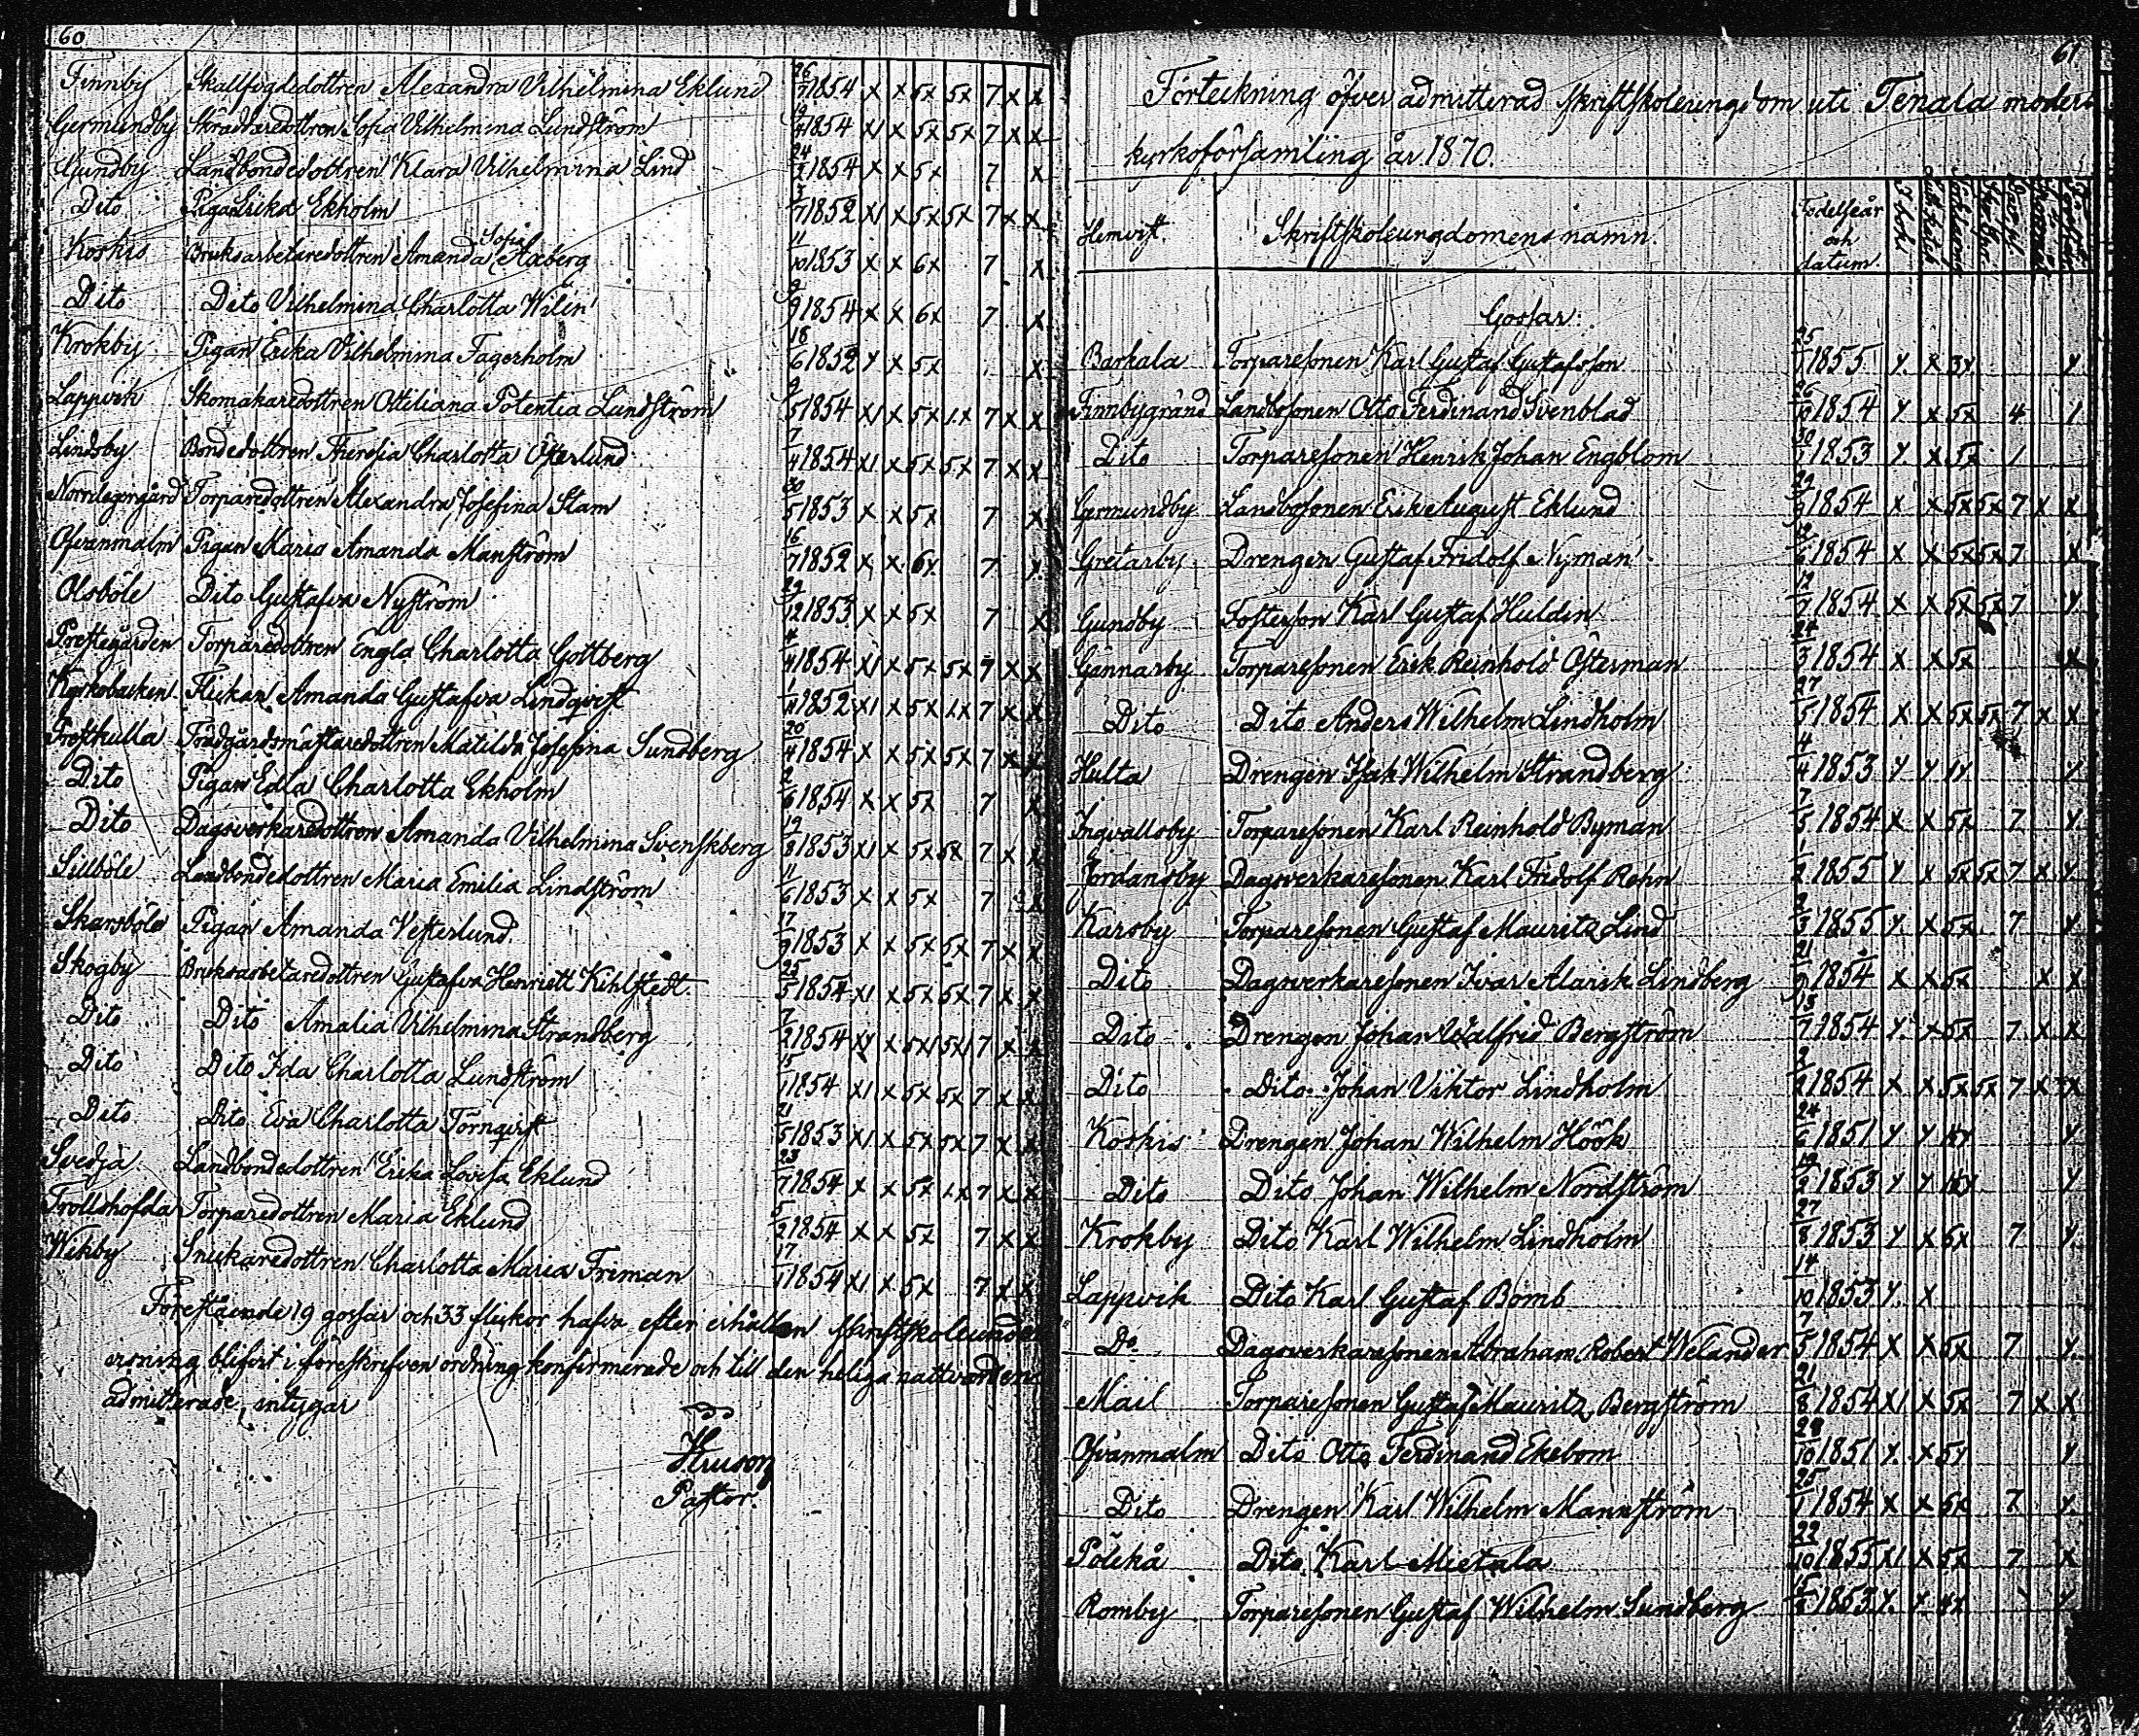 60
Finnby Skallfogdedottren Alexandra Vilhelmina Eklund 26/7 1854 x x 5x 5x 7 x x
Germundby Skräddaredottren Sofia Vilhelmina Lundström 19/4 1854 x1 x 5x 5x 7 x x
Gundby Landbondedottren Klara Vilhelmina Lind 1854 x x 5x 7 x
Dito Pigan Erika Ekholm 3/7 1852 x1 x 5x 5x 7 x x
Koskis Bruksarbetaredottren Amanda Sofia Axberg 11/10 1853 x x 6x 7 x
Dito Dito Vilhelmina Charlotta Wilén 9/9 1854 x x 6x 7 x
Krokby Pigan Erika Vilhelmina Fagerholm 18/6 1852 x x 5x x
Lappvik Skomakaredottren Otteliana Potentia Lundström 9/5 1854 x1 x 5x 1x 7 x x
Lindsby Bondedottren Theresia Charlotta Österlund 7/4 1854 x1 x 5x 5x 7 x x
Norrdagergård Torparedottren Alexandra Josefina Stam 30/5 1853 x x 5x 7 x
Ofvanmalm Pigan Maria Amanda Manström 16/7 1852 x x 6x 7 x
Olsböle Dito Gustafva Nyström 29/12 1853 x x 5x 7 x
Prestegården Torparedottren Engla Charlotta Gottberg 4/4 1854 x1 x 5x 5x 7 x x
Kyrkobacken Flickan Amanda Gustafva Lindqvist 1/11 1852 x1 x 5x 1x 7 x x
Prestkulla Trädgårdsmästaredottren Matilda Josefina Sundberg 20/4 1854 x x 5x 5x 7 x x
Dito Pigan Edla Charlotta Ekholm 2/6 1854 x x 5x 7 x
Dito Dagsverkaredottren Amanda Vilhelmina Svenskberg 19/8 1853 x1 x 5x 5x 7 x x
Sillböle Landbondedottren Maria Emilia Lindström 11/6 1853 x x 5x 7 x
Skansböle Pigan Amanda Vesterlund 17/9 1853 x x 5x 5x 7 x x
Skogby Bruksarbetaredottren Gustafva Henriett Kihlstedt 25/5 1854 x1 x 5x 5x 7 x x
Dito Dito Amalia Vilhelmina Strandberg 7/2 1854 x x 7 x x
Dito Dito Ida Charlotta Lundström 15/1 1854 x1 x 5x 5x 7 x x
Dito Dito Eva Charlotta Törnqvist 21/5 1853 x1 x 5x 5x 7 x x
Svedja Landbondedottren Erika Lovisa Eklund 23/7 1854 x x 5x 1x 7 x x
Trollshofda Torparedottren Maria Eklund 5/2 1854 x x 5x 7 x x
Wikby Snickaredottren Charlotta Maria Friman 17/1 1854 x1 x 5x 7 x x
Förestående 19 gossar och 33 flickor hafva efter erhållen skriftskoleunder
visning blifvit i föreskrefven ordning konfirmerade och till den heliga nattvarden
admitterade, intygar
Pastor.
61
Förteckning öfver admitterad skriftskoleungdom uti Tenala moder-
kyrkoförsamling år 1870.
Hemvist. Skriftskoleungdomens namn. Födelseår och datum. I bok
Gossar:
Barkala Torparesonen Karl Gustaf Gustafsson 25/1 1855 x x 3x x
Finnbygränd Landbosonen Otto Ferdinand Svenblad 26/10 1854 x x 5x 4 1
Dito Torparesonen Henrik Johan Engblom 1853 x x 5x 1
Germundby Landbosonen Erik August Eklund 1854 x x 5x 5x 7 x x
Gretarby Drengen Gustaf Fridolf Nyman 1854 x x 5x 5x 7 x
Gundby Fosterson Karl Gustaf Huldin 12/7 1854 x x 5x 5x 7 x
Gännarby Torparesonen Erik Reinhold Österman 24/3 1854 x x 5x x
Dito Dito Anders Wilhelm Lindholm 27/5 1854 x x 5x 5x 7 x x
Hulta Drengen Isak Wilhelm Strandberg 4/4 1853 x x 1x x
Ingvallsby Torparesonen Karl Reinhold Byman 7/5 1854 x x 5x 7 x
Jordansby Dagsverkaresonen Karl Fridolf Rehn 1/2 1855 x x 5x 5x 7 x x
Karsby Torparesonen Gustaf Mauritz Lind 2/3 1855 x x 5x 7 x
Dito Dagsverkaresonen Ivar Alarik Lindberg 21/9 1854 x x 5x x x
Dito Drengen Johan Walfrid Bergström 13/7 1854 x x 5x 7 x x
Dito Dito Johan Viktor Lindholm 2/2 1854 x x 5x 5x 7 x x
Koskis Drengen Johan Wilhelm Höök 24/6 1851 x x x
Dito Dito Johan Wilhelm Nordström 19/2 1853 x x x
Krokby Dito Karl Wilhelm Lindholm 27/8 1853 x x 5x 7 x
Lappvik Dito Karl Gustaf Bomb 14/10 1853 x x
Do Dagsverkaresonen Abraham Robert Welander 7/5 1854 x x 5x 7 x
Mail Torparesonen Gustaf Mauritz Bergström 21/8 1854 x1 x 5x 7 x x
Ofvanmalm Dito Otto Ferdinand Ekebom 28/10 1851 x x 5x x
Dito Drengen Karl Wilhelm Mannström 25/1 1854 x x 5x 7 x
Pölekå Dito Karl Mietala 22/10 1855 x1 x 5x 7 x
Romby Torparesonen Gustaf Wilhelm Sundberg 1853 x x 4x x